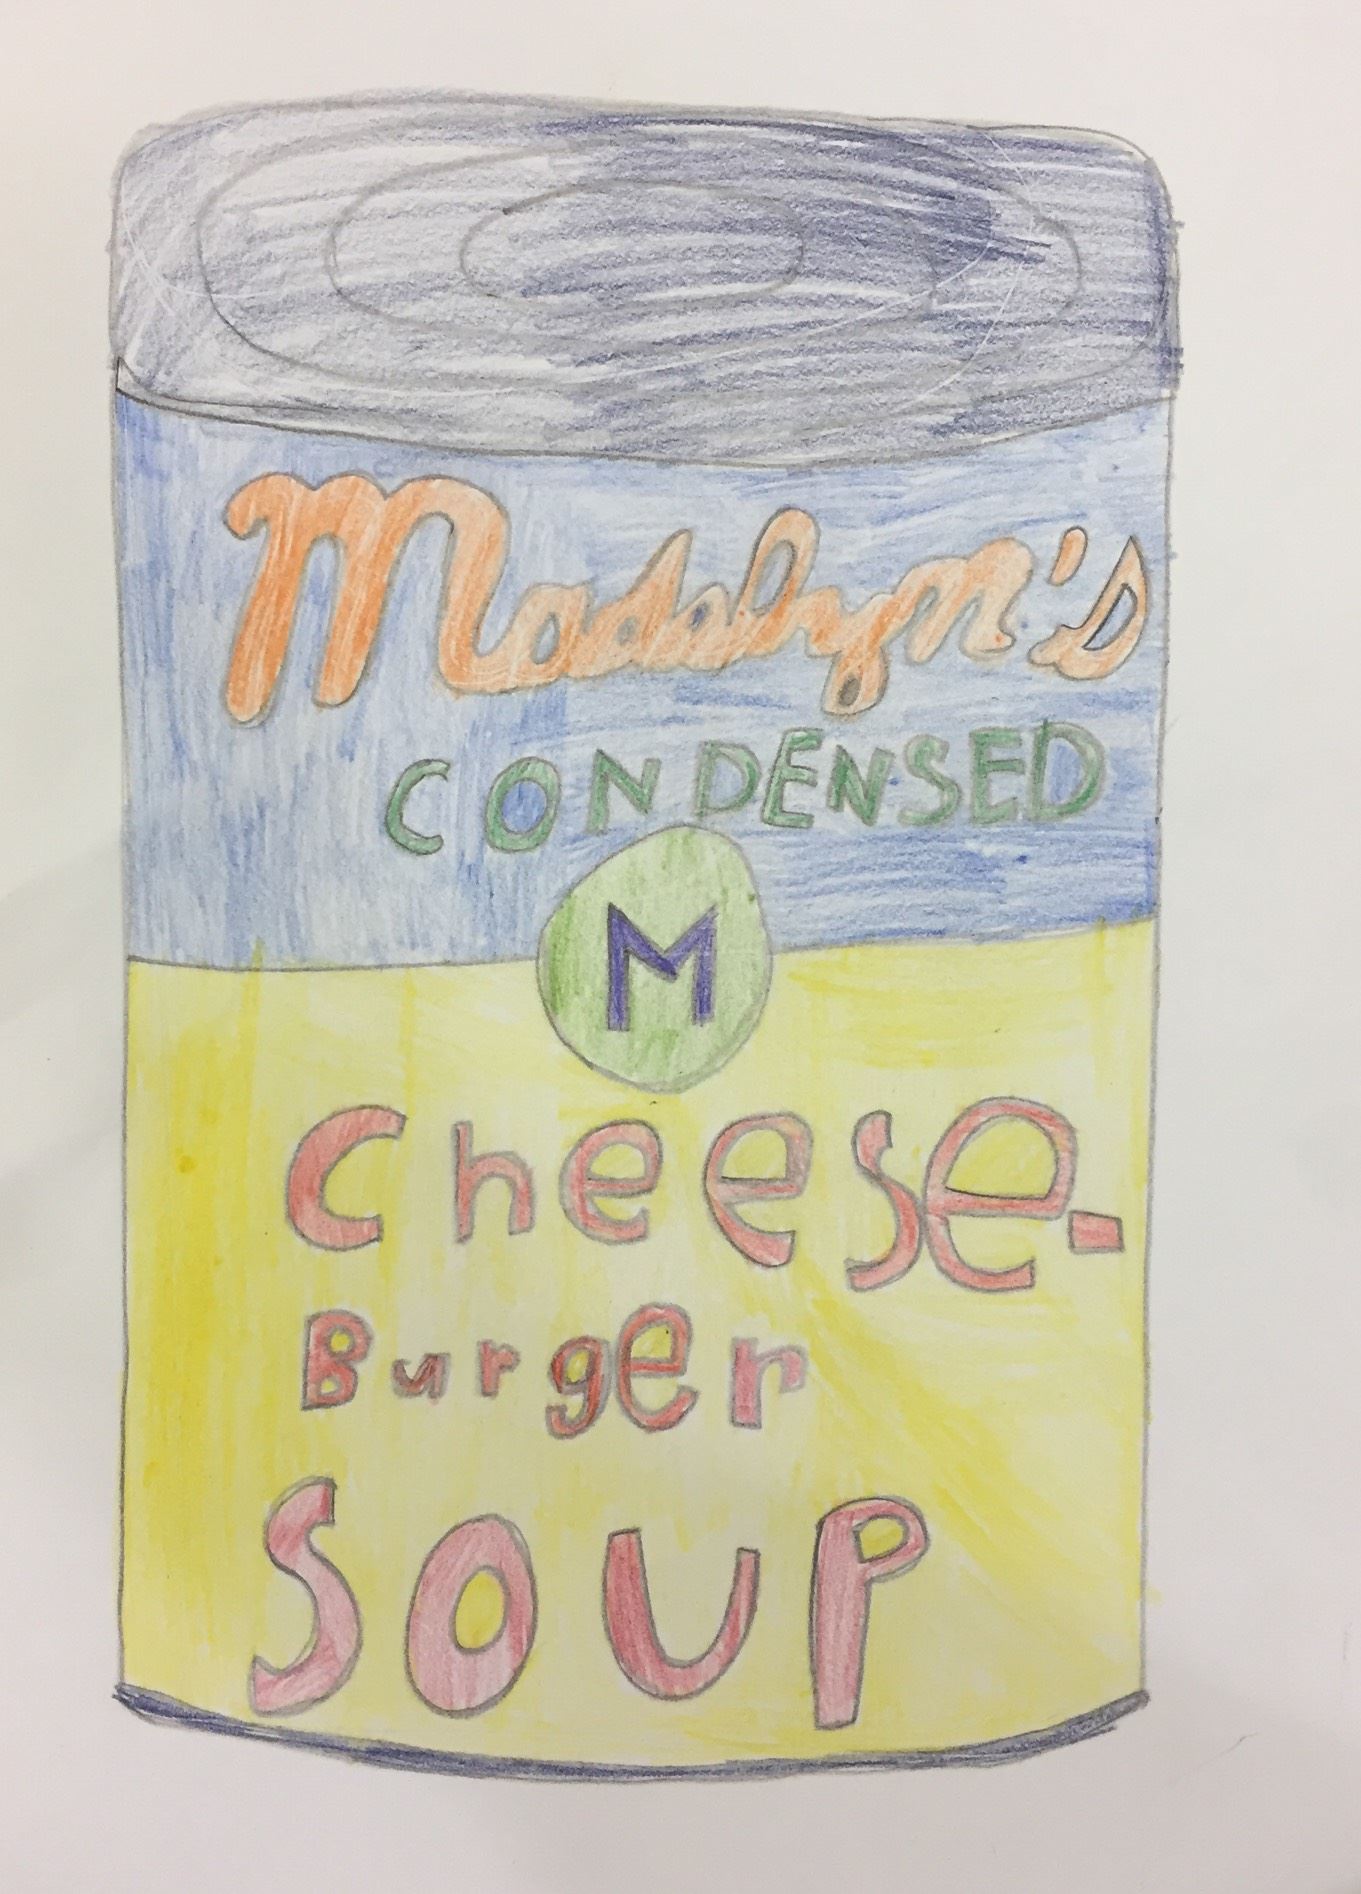 Madalyn's
CONDENSED
M
Cheese-
Burger
SOUP